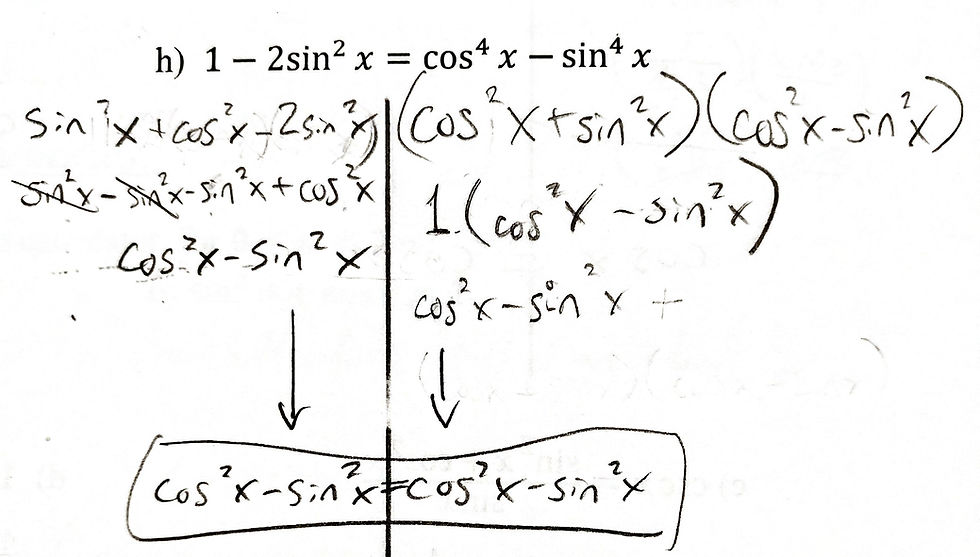 h) 1 − 2sin² x = cos⁴ x − sin⁴ x
sin²x + cos²x - 2sin²x
(cos²x + sin²x)(cos²x - sin²x)
sin²x - sin²x - sin²x + cos²x
1.(cos²x - sin²x)
cos²x - sin²x
cos²x - sin²x +
cos²x - sin²x = cos²x - sin²x